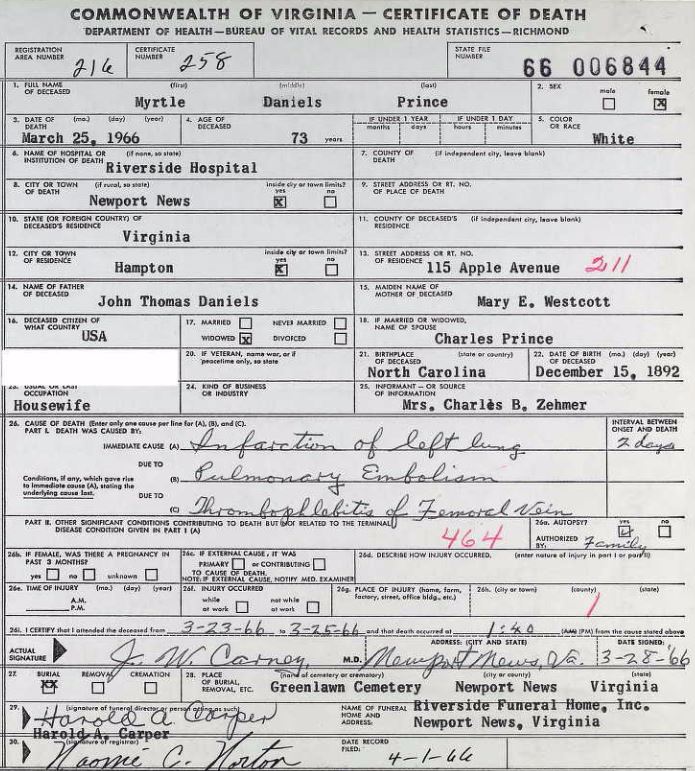 COMMONWEALTH OF VIRGINIA — CERTIFICATE OF DEATH
DEPARTMENT OF HEALTH—BUREAU OF VITAL RECORDS AND HEALTH STATISTICS—RICHMOND
REGISTRATION AREA NUMBER 216 CERTIFICATE NUMBER 258 STATE FILE NUMBER 66 006844
1. FULL NAME OF DECEASED (first) (middle) (last) 2. SEX male female
Myrtle Daniels Prince ☐ ☒
3. DATE OF DEATH (mo.) (day) (year) 4. AGE OF DECEASED IF UNDER 1 YEAR IF UNDER 1 DAY 5. COLOR OR RACE
months days hours minutes
March 25, 1966 73 years White
6. NAME OF HOSPITAL OR INSTITUTION OF DEATH (if none, so state) 7. COUNTY OF DEATH (if independent city, leave blank)
Riverside Hospital
8. CITY OR TOWN OF DEATH (if rural, so state) inside city or town limits? yes no 9. STREET ADDRESS OR RT. NO. OF PLACE OF DEATH
Newport News ☒ ☐
10. STATE (OR FOREIGN COUNTRY) OF DECEASED'S RESIDENCE 11. COUNTY OF DECEASED'S RESIDENCE (if independent city, leave blank)
Virginia
12. CITY OR TOWN OF RESIDENCE inside city or town limits? yes no 13. STREET ADDRESS OR RT. NO. OF RESIDENCE
Hampton ☒ ☐ 115 Apple Avenue 211
14. NAME OF FATHER OF DECEASED 15. MAIDEN NAME OF MOTHER OF DECEASED
John Thomas Daniels Mary E. Westcott
16. DECEASED CITIZEN OF WHAT COUNTRY 17. MARRIED ☐ NEVER MARRIED ☐ 18. IF MARRIED OR WIDOWED, NAME OF SPOUSE
USA WIDOWED ☒ DIVORCED ☐ Charles Prince
20. IF VETERAN, name war, or if peacetime only, so state 21. BIRTHPLACE (state or country) 22. DATE OF BIRTH (mo.) (day) (year)
North Carolina December 15, 1892
23. USUAL OR LAST OCCUPATION 24. KIND OF BUSINESS OR INDUSTRY 25. INFORMANT — OR SOURCE OF INFORMATION
Housewife Mrs. Charles B. Zehmer
26. CAUSE OF DEATH (Enter only one cause per line for (A), (B), and (C). INTERVAL BETWEEN ONSET AND DEATH
PART I. DEATH WAS CAUSED BY:
IMMEDIATE CAUSE (A) Infarction of left lung 2 days
DUE TO
Conditions, if any, which gave rise to immediate cause (A), stating the underlying cause last. (B) Pulmonary Embolism
DUE TO
(C) Thrombophlebitis of Femoral Vein
PART II. OTHER SIGNIFICANT CONDITIONS CONTRIBUTING TO DEATH BUT NOT RELATED TO THE TERMINAL DISEASE CONDITION GIVEN IN PART I (A) 26a. AUTOPSY? yes no
464 AUTHORIZED BY: Family
26b. IF FEMALE, WAS THERE A PREGNANCY IN PAST 3 MONTHS? 26c. IF EXTERNAL CAUSE, IT WAS 26d. DESCRIBE HOW INJURY OCCURRED. (enter nature of injury in part I or part II)
yes ☐ no ☐ unknown ☐ PRIMARY ☐ or CONTRIBUTING ☐ TO CAUSE OF DEATH.
NOTE: IF EXTERNAL CAUSE, NOTIFY MED. EXAMINER
26e. TIME OF INJURY (mo.) (day) (year) 26f. INJURY OCCURRED 26g. PLACE OF INJURY (home, farm, factory, street, office bldg., etc.) 26h. (city or town) (county) (state)
A.M. P.M. while at work ☐ not while at work ☐ 1
26i. I CERTIFY that I attended the deceased from 3-23-66 to 3-25-66 and that death occurred at 1:40 (AM) (PM) from the cause stated above
ACTUAL SIGNATURE J. W. Carney, M.D. ADDRESS: (CITY AND STATE) Newport News, Va. DATE SIGNED: 3-28-66
27. BURIAL REMOVAL CREMATION 28. PLACE OF BURIAL, REMOVAL, ETC. (name of cemetery or crematory) (city or county) (state)
XX ☐ ☐ Greenlawn Cemetery Newport News Virginia
29. (signature of funeral director or person acting as such) NAME OF FUNERAL HOME AND ADDRESS: Riverside Funeral Home, Inc.
Harold A Carper Newport News, Virginia
Harold A. Carper
30. (signature of registrar) DATE RECORD FILED:
Naomi C. Norton 4-1-66